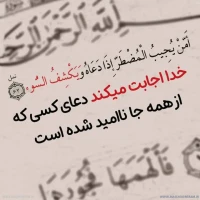 بِسْمِ اللَّهِ الرَّحْمَنِ الرَّحِيمِ
أَمَّنْ يُجِيبُ الْمُضْطَرَّ إِذَا دَعَاهُ وَيَكْشِفُ السُّوءَ
نمل
خدا اجابت میکند دعای کسی که
از همه جا ناامید شده است
فَأَلْهَمَهَا فُجُورَهَا